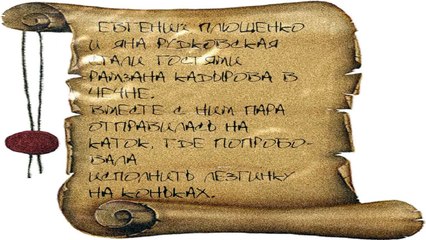 ЕВГЕНИЙ ПЛЮЩЕНКО
И ЯНА РУДКОВСКАЯ
СТАЛИ ГОСТЯМИ
РАМЗАНА КАДЫРОВА В
ЧЕЧНЕ.
ВМЕСТЕ С НИМ ПАРА
ОТПРАВИЛАСЬ НА
КАТОК, ГДЕ ПОПРОБО-
ВАЛА
ИСПОЛНИТЬ ЛЕЗГИНКУ
НА КОНЬКАХ.